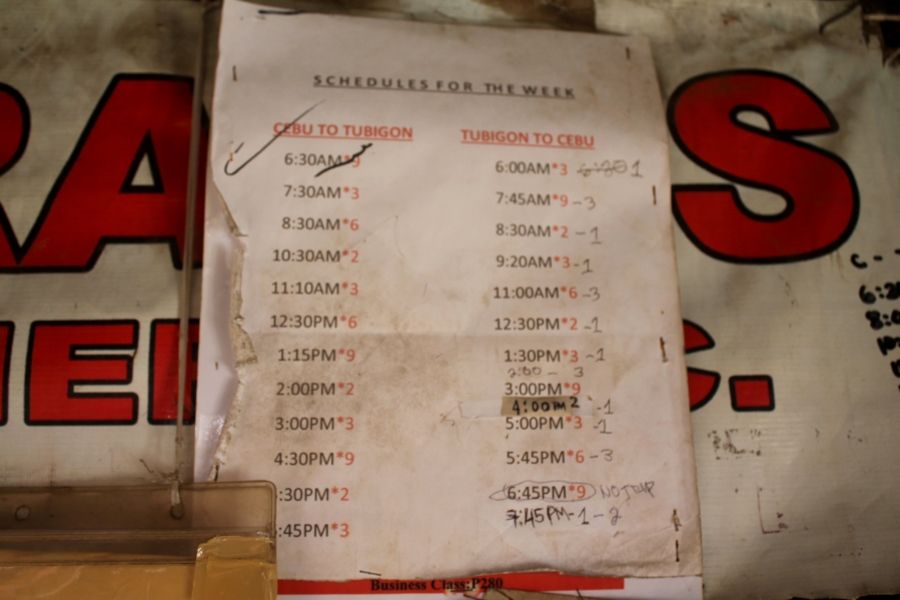 SCHEDULES FOR THE WEEK
CEBU TO TUBIGON
6:30AM*9
7:30AM*3
8:30AM*6
10:30AM*2
11:10AM*3
12:30PM*6
1:15PM*9
2:00PM*2
3:00PM*3
4:30PM*9
:30PM*2
:45PM*3
TUBIGON TO CEBU
6:00AM*3 6:30 1
7:45AM*9 -3
8:30AM*2 -1
9:20AM*3 -1
11:00AM*6 -3
12:30PM*2 -1
1:30PM*3 -1
2:00 - 3
3:00PM*9
4:00PM 2 -1
5:00PM*3 -1
5:45PM*6 -3
6:45PM*9 NO TRIP
7:45PM-1-2
Business Class:P280
RA S
ER C.